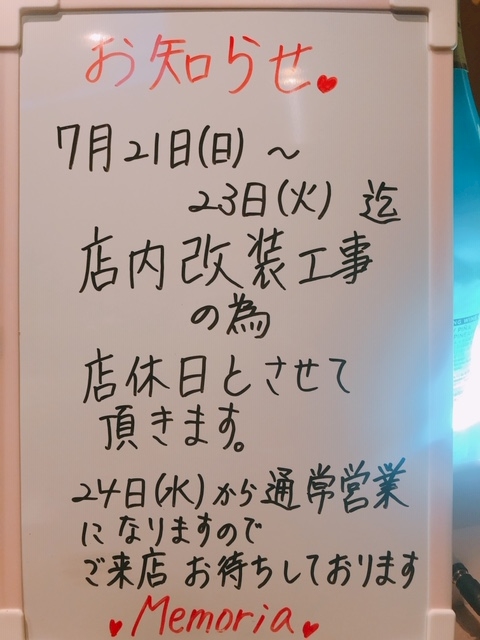 お知らせ♥
7月21日(日)～
23日(火)迄
店内改装工事
の為
店休日とさせて
頂きます。
24日(水)から通常営業
になりますので
ご来店 お待ちしております
♥Memoria♥